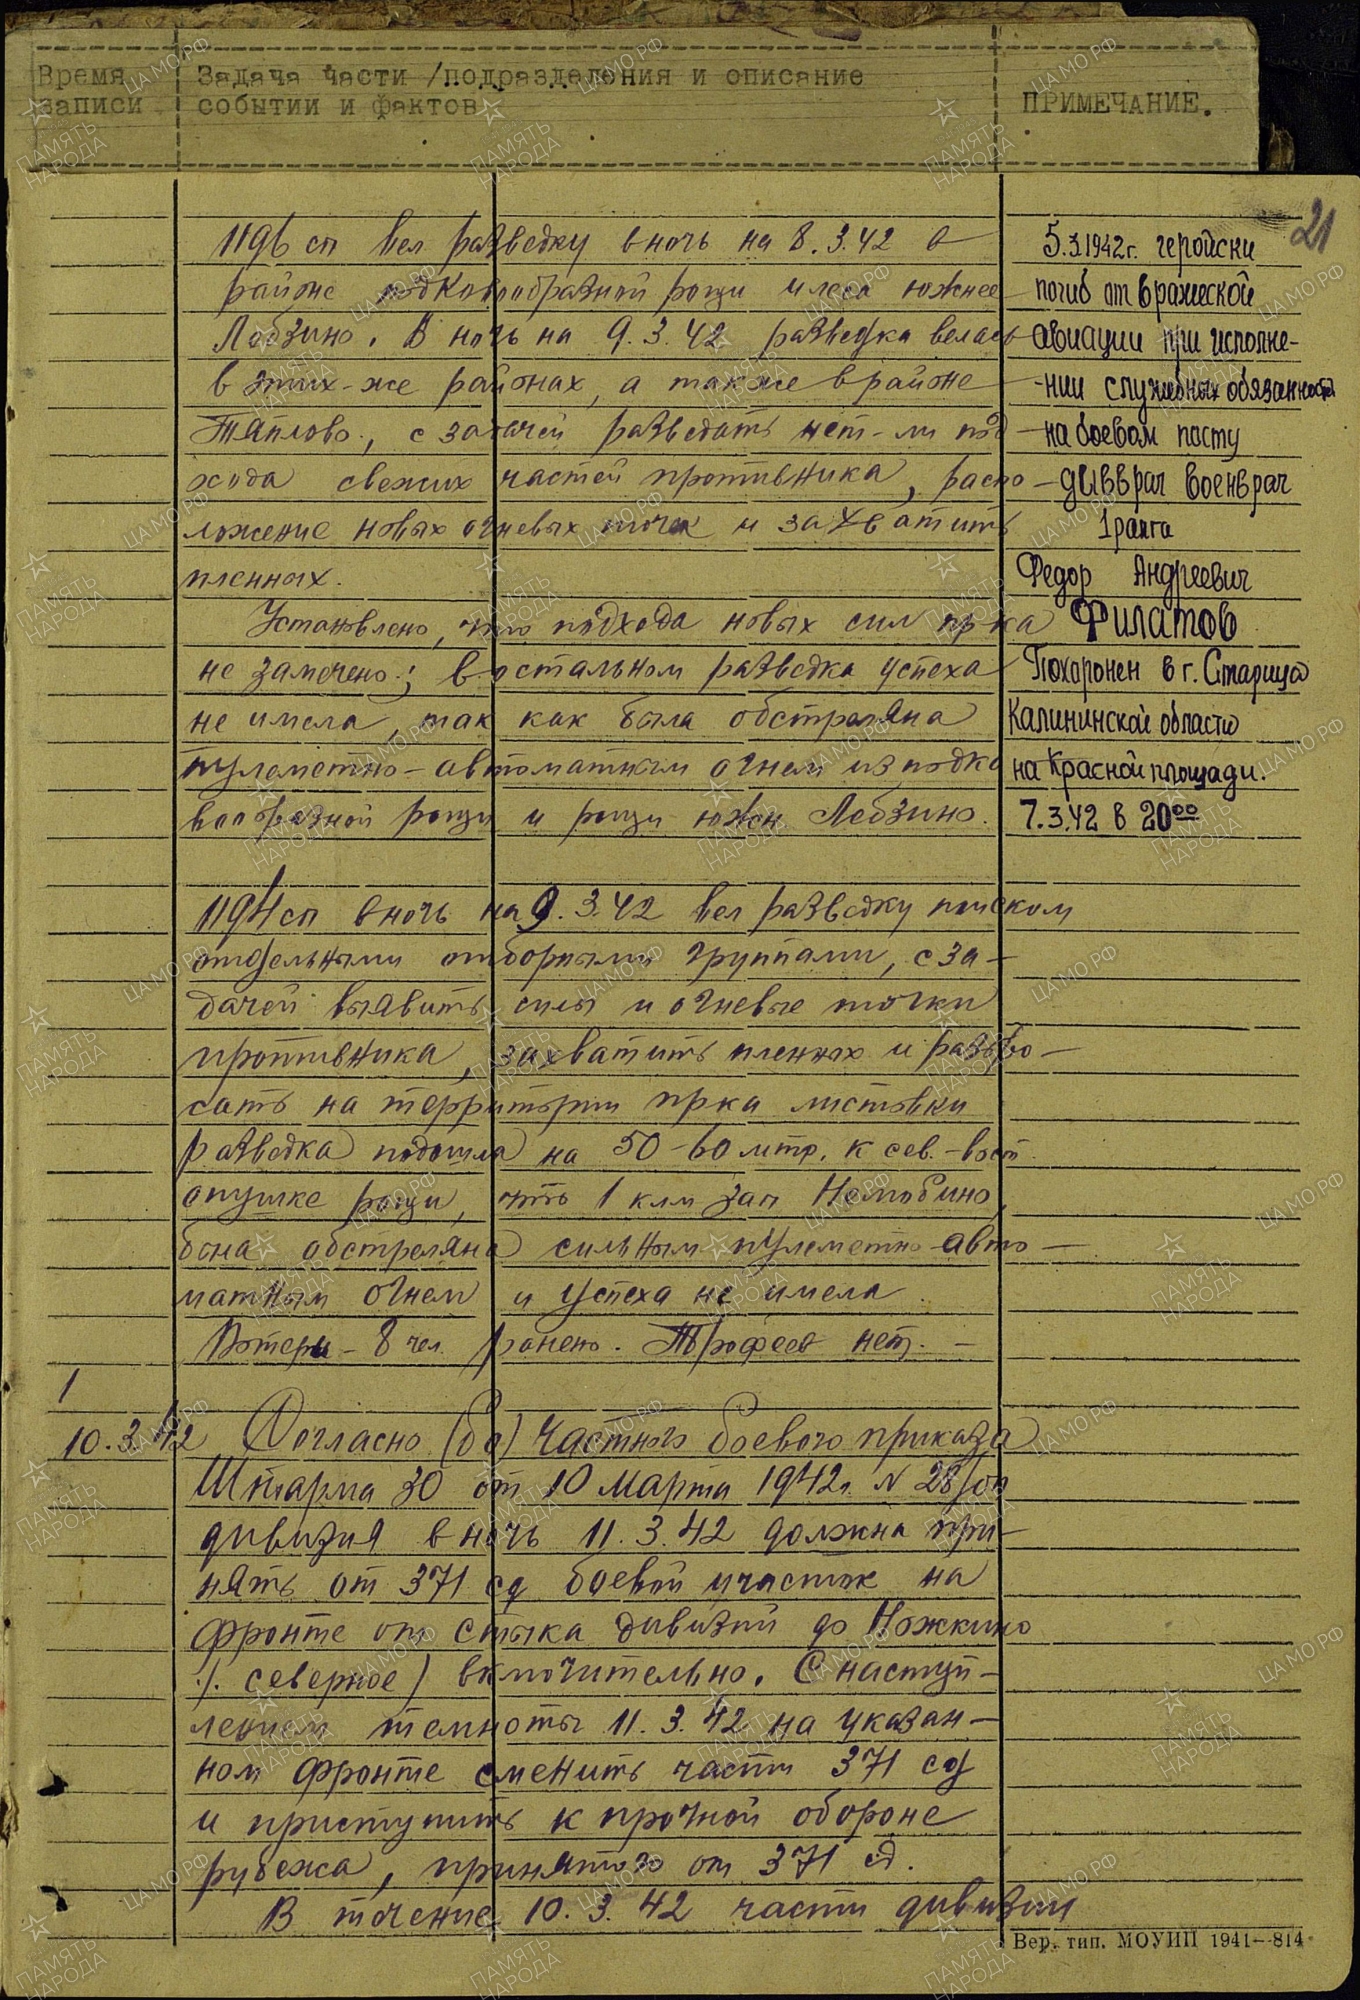 Время записи
Задача части /подразделения и описание
событий и фактов
ПРИМЕЧАНИЕ.
21
1196 сп вел разведку в ночь на 8.3.42 в
районе подковообразной рощи и леса южнее
Лебзино. В ночь на 9.3.42 разведка велась
в этих-же районах, а также в районе
Тяплово, с задачей разведать нет-ли под
хода свежих частей противника, распо-
ложение новых огневых точек и захватить
пленных.
Установлено, что подхода новых сил пр-ка
не замечено; в остальном разведка успеха
не имела, так как была обстреляна
пулеметно-автоматным огнем из подко
вообразной рощи и рощи южн Лебзино.
1194 сп в ночь на 9.3.42 вел разведку поиском
отдельными отборными группами, с за-
дачей выявить силы и огневые точки
противника, захватить пленных и разбро-
сать на территории прка листовки
разведка подошла на 50-60 мтр. к сев.-вост.
опушке рощи, что 1 клм зап
была обстреляна сильным пулеметно-авто-
матным огнем и успеха не имела.
Потери - 8 чел. ранено. Трофеев нет.-
5.3.1942г. геройски
погиб от вражеской
авиации при исполне-
-нии служебных обязанностей
на боевом посту
дивврач военврач
1 ранга
Федор Андреевич
Филатов
Похоронен в г. Старица
Калининской области
на Красной площади.
7.3.42 в 20оо
1
10.3.42
Согласно (бо) Частного боевого приказа
Штарма 30 от 10 марта 1942г. N 28/оп
дивизия в ночь 11.3.42 должна при-
нять от 371 сд боевой участок на
фронте от стыка дивизий до Ножкино
/. северное) включительно. С наступ-
лением темноты 11.3.42 на указан-
ном фронте сменить части 371 сд
и приступить к прочной обороне
рубежа, принятого от 371 сд.
В течение 10.3.42 части дивизии
Вер. тип. МОУИП 1941—814
ПАМЯТЬ НАРОДА
ЦАМО.РФ